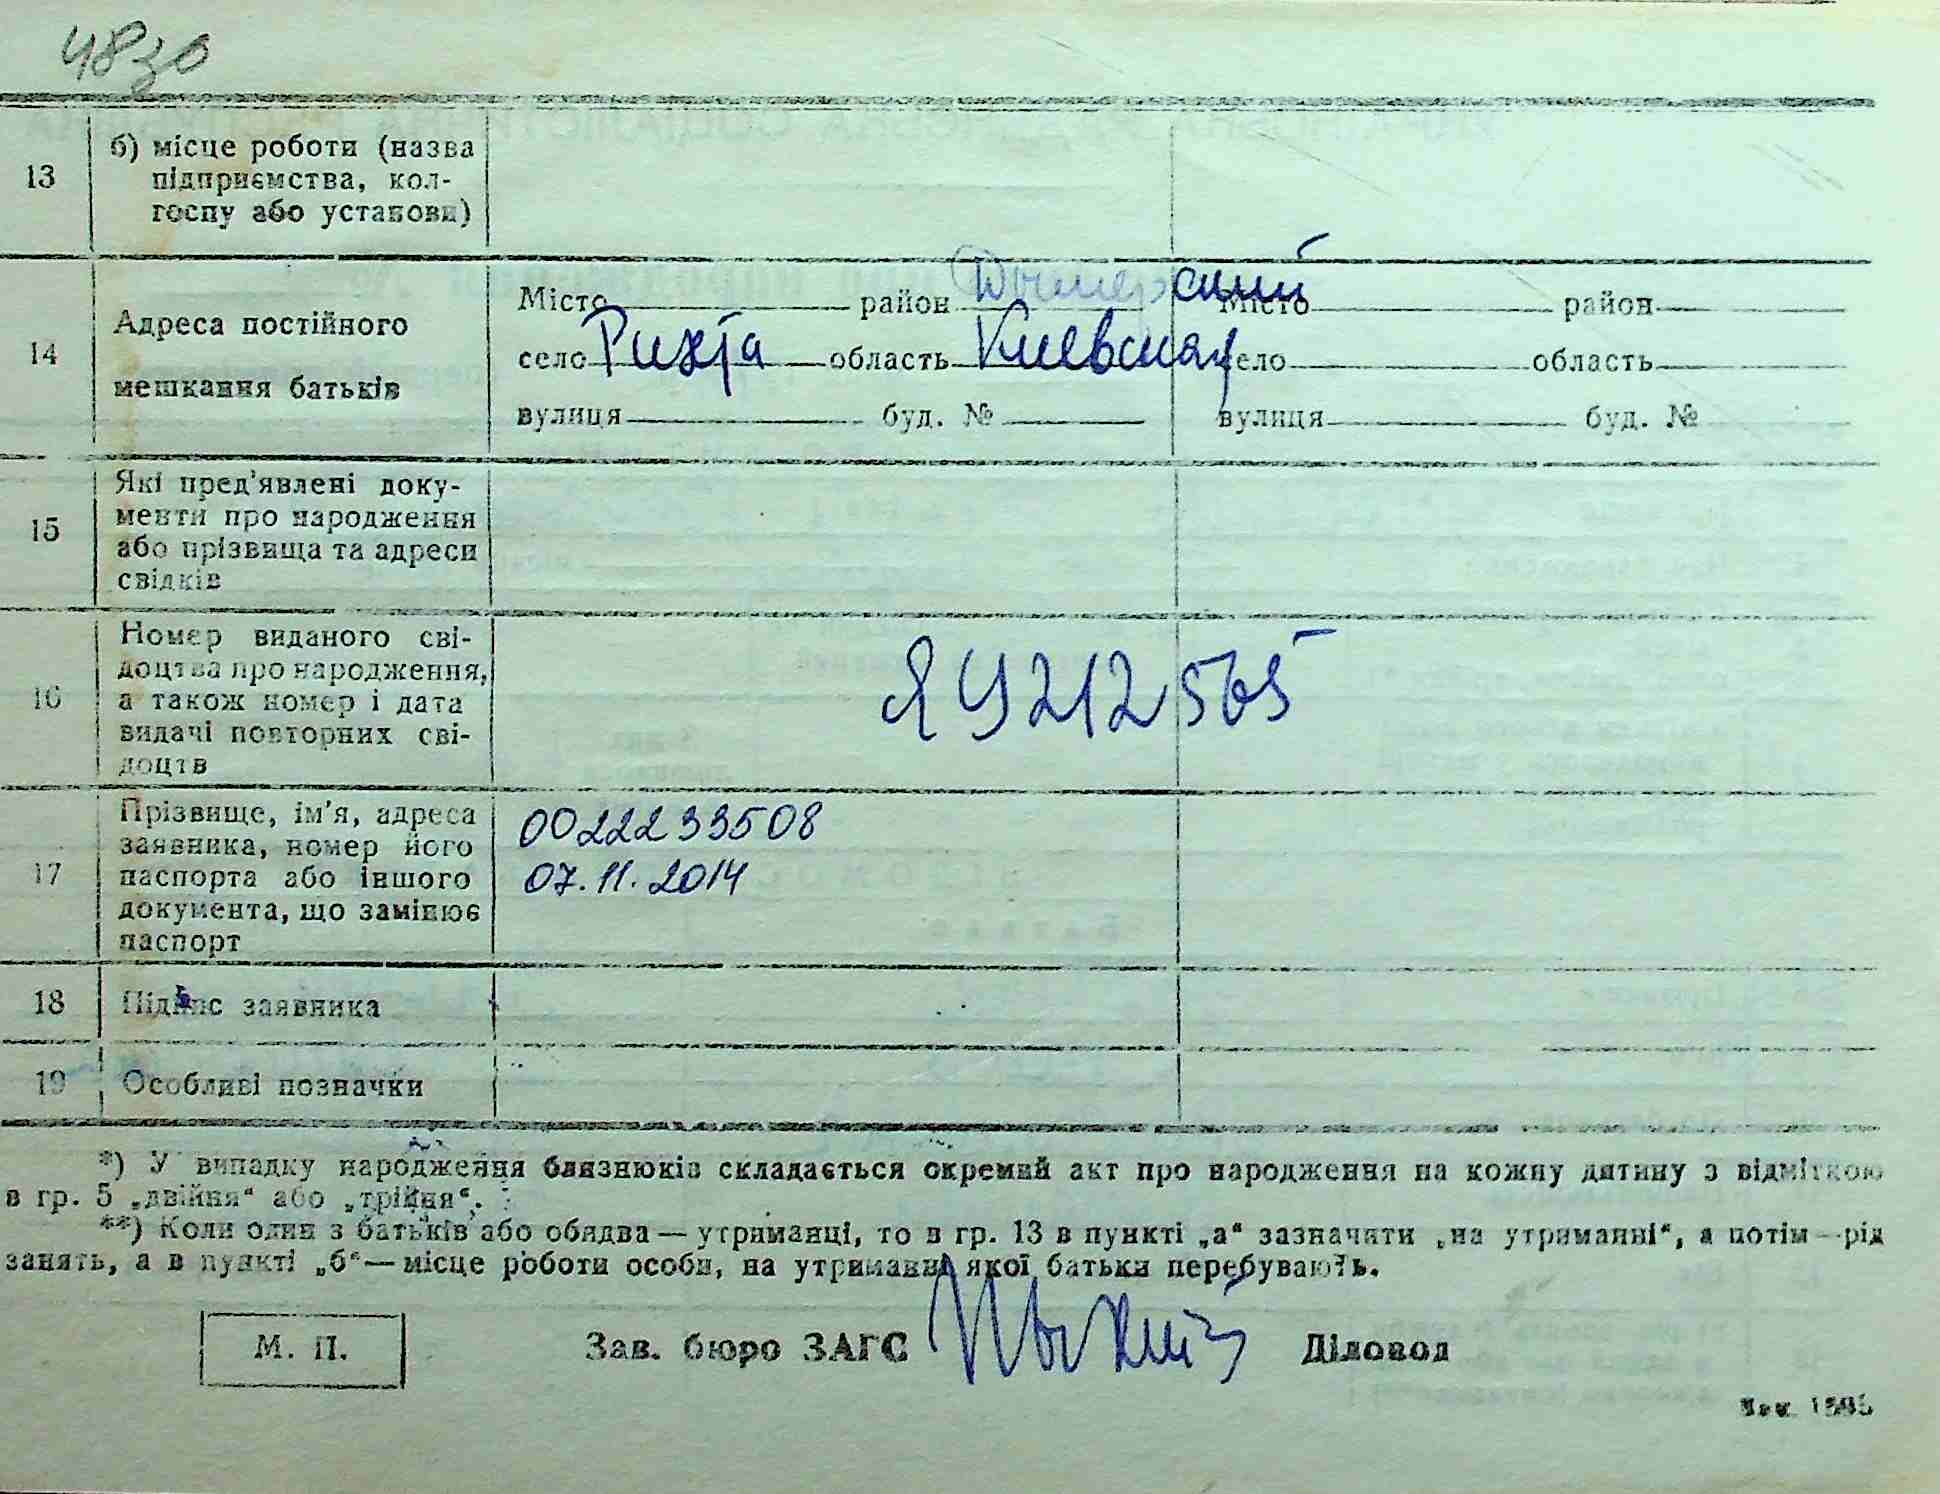 48зо
13
б) місце роботи (назва
підприємства, кол-
госпу або установи)
14
Адреса постійного
мешкання батьків
Місто район Дымерский
село Рихта область Киевская
вулиця буд. №
Місто район
село область
вулиця буд. №
15
Які пред'явлені доку-
менти про народження
або прізвища та адреси
свідків
16
Номер виданого сві-
доцтва про народження,
а також номер і дата
видачі повторних сві-
доцтв
ЯУ212565
17
Прізвище, ім'я, адреса
заявника, номер його
паспорта або іншого
документа, що замінює
паспорт
0022233508
07.11.2014
18
Підпис заявника
19
Особливі позначки
*) У випадку народження близнюків складається окремий акт про народження на кожну дитину з відміткою
в гр. 5 „двійня“ або „трійня“.
**) Коли один з батьків або обидва — утриманці, то в гр. 13 в пункті „а“ зазначати „на утриманні“, а потім — рід
занять, а в пункті „б“ — місце роботи особи, на утриманні якої батьки перебувають.
М. П.
Зав. бюро ЗАГС
Діловод
Зам. 1595